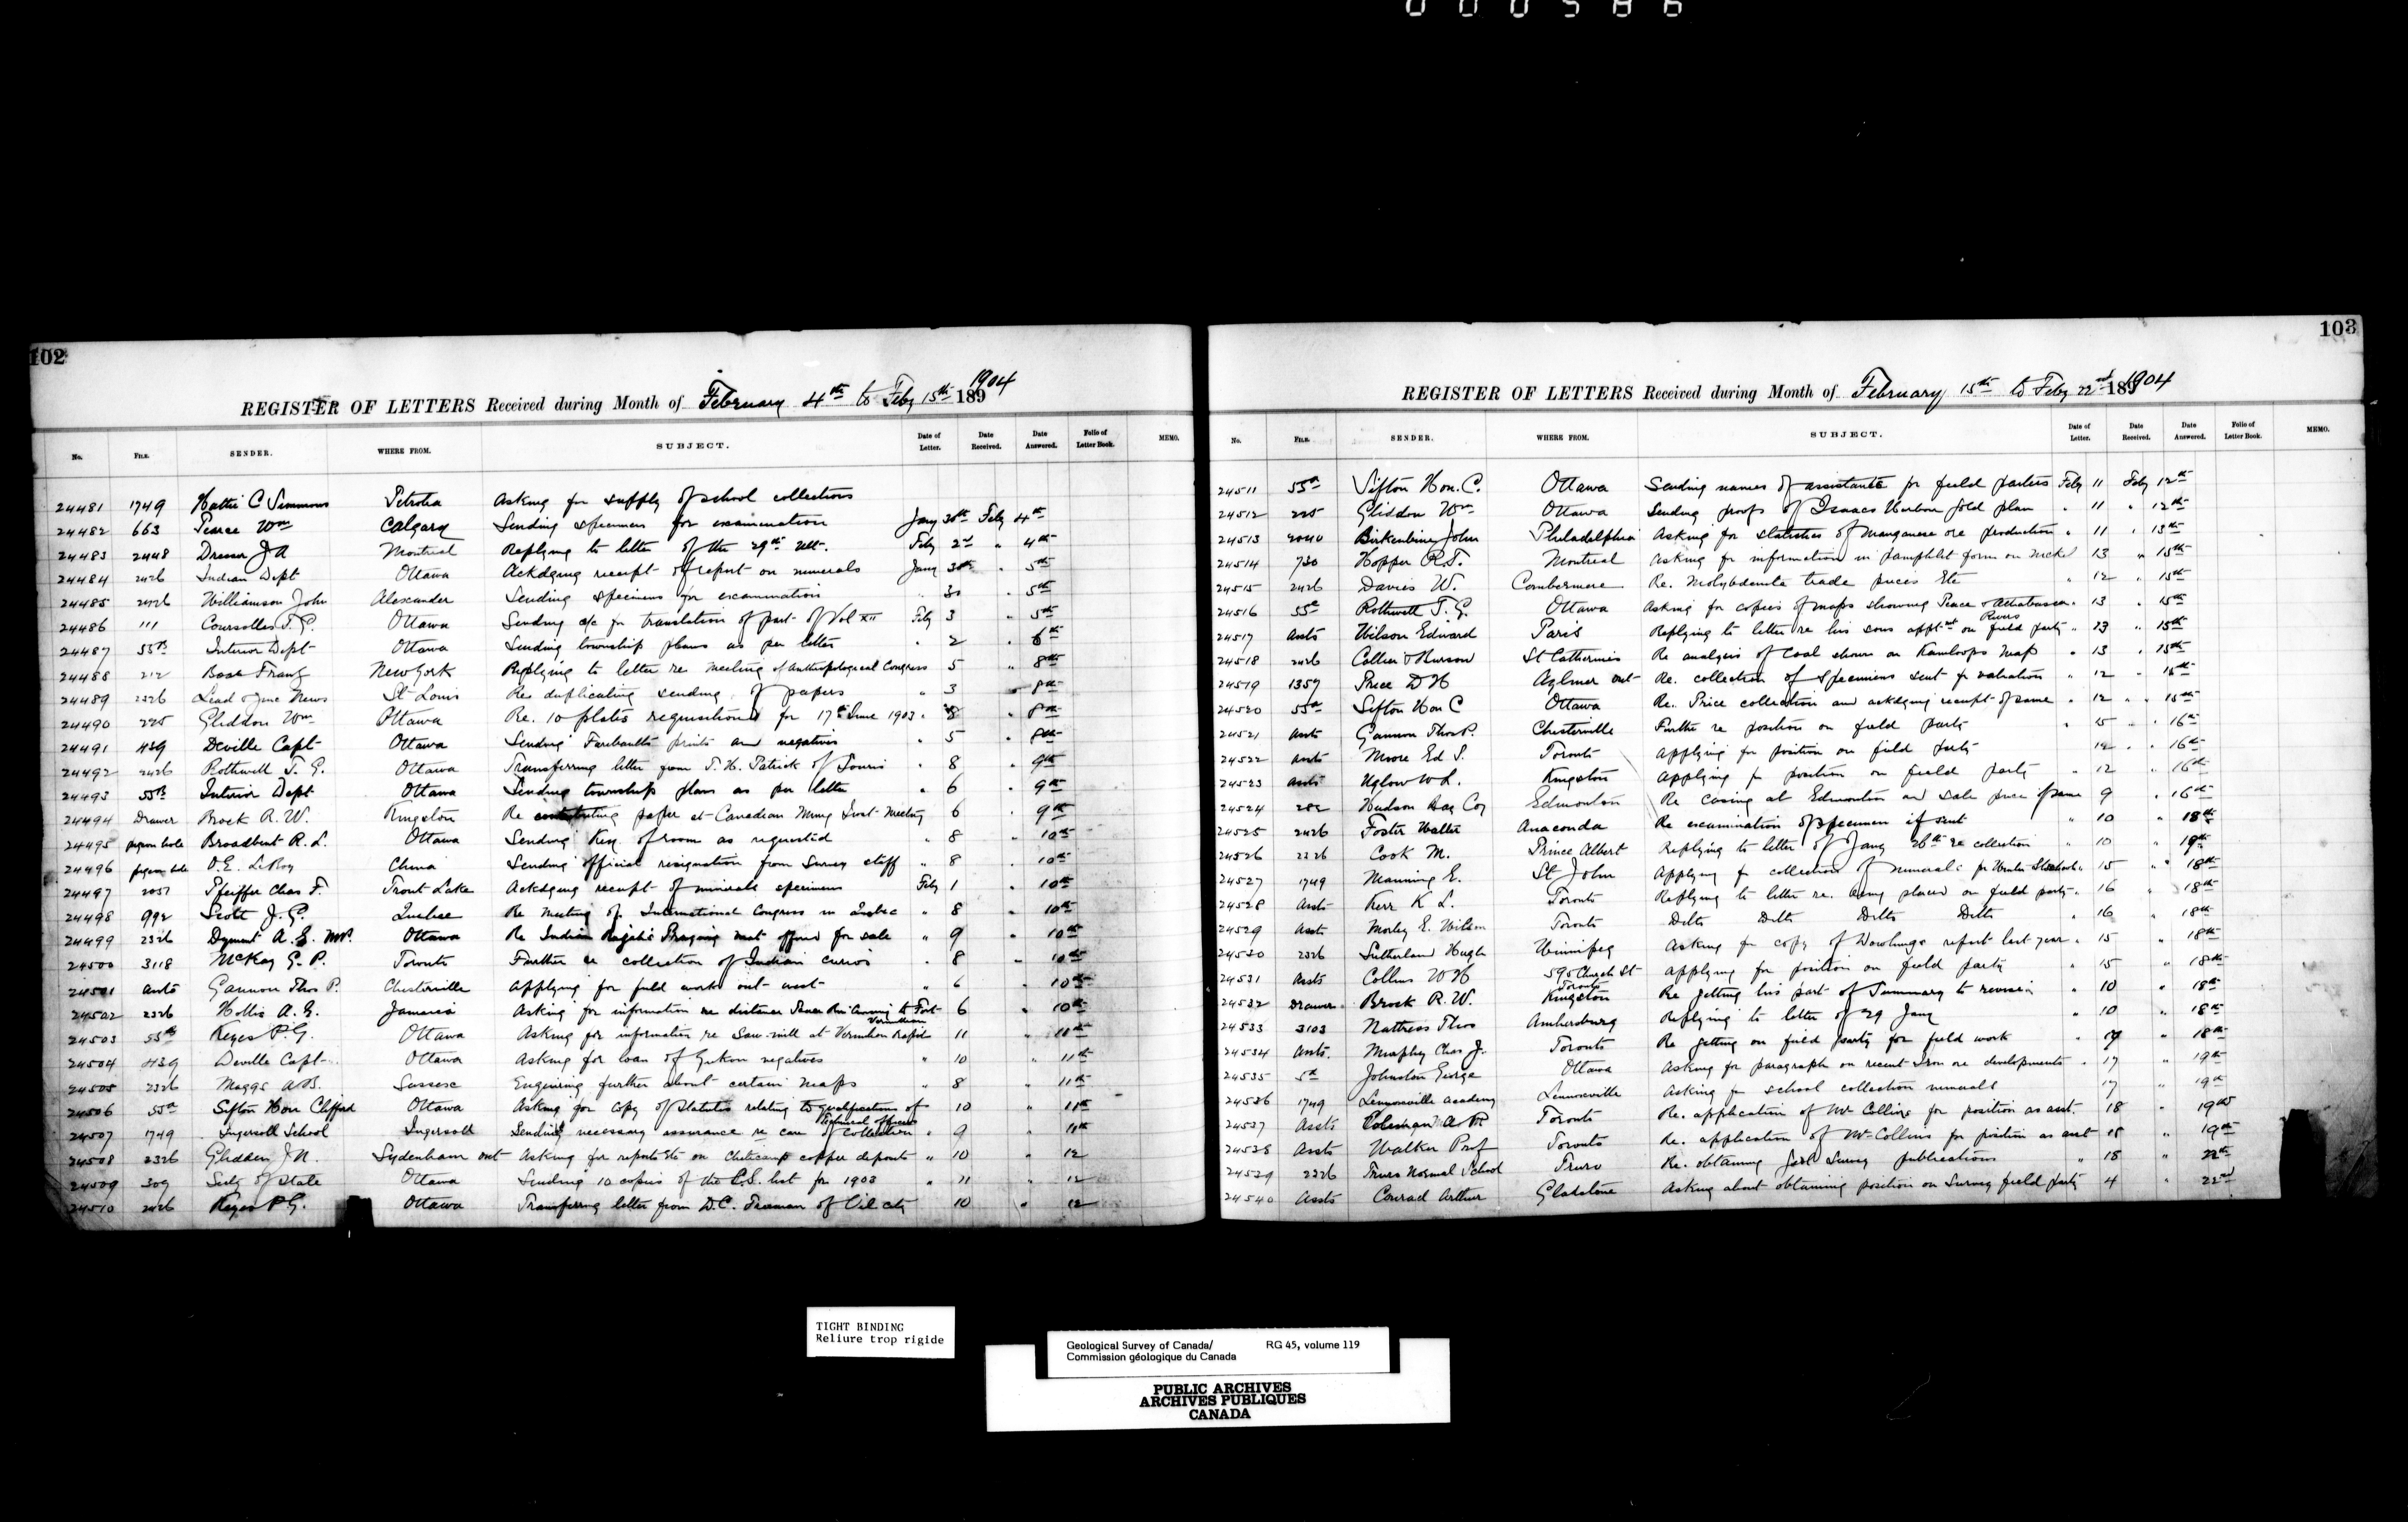 000586
102
REGISTER OF LETTERS Received during Month of February 4th to Feby 15th 1891904
No. FILE. SENDER. WHERE FROM. SUBJECT. Date of Letter. Date Received. Date Answered. Folio of Letter Book. MEMO.
24481 1749 Hattie C Simmons Petrolia Asking for supply of school collections
24482 663 Pearce Wm Calgary Sending specimens for examination Jany 30th Feby 4th
24483 2448 Dresser J A Montreal Replying to letter of the 29th ult. Feby 2nd " 4th
24484 2426 Indian Dept Ottawa Ackdging receipt of report on minerals Jany 30th " 5th
24485 2426 Williamson John Alexander Sending specimens for examination " 30 " 5th
24486 111 Coursolles T.P. Ottawa Sending a/c for translation of part of Vol XII Feby 3 " 5th
24487 55B Interior Dept Ottawa Sending township plans as per letter " 2 " 6th
24488 212 Boas Franz New York Replying to letter re meeting of Anthropological Congress 5 " 8th
24489 2326 Lead & Zinc News St Louis Re duplicating sending of papers " 3 " 8th
24490 225 Gliddon Wm Ottawa Re. 10 plates requisitioned for 17th June 1903 " 8 " 8th
24491 439 Deville Capt Ottawa Sending Faribault's prints and negatives " 5 " 8th
24492 2426 Rothwell T. G. Ottawa Transferring letter from T. H. Patrick of Souris " 8 " 9th
24493 55B Interior Dept Ottawa Sending township plans as per letter " 6 " 9th
24494 Drawer Brock R. W. Kingston Re contributing paper at Canadian Mining Inst Meeting 6 " 9th
24495 pigeon hole Broadbent R. L. Ottawa Sending Key of room as requested " 8 " 10th
24496 pigeon hole O.E. LeRoy China Sending official resignation from Survey staff " 8 " 10th
24497 2057 Pfeiffer Chas F. Trout Lake Ackdging receipt of minerals specimens Feby 1 " 10th
24498 992 Scott J. G. Quebec Re meeting of International Congress in Quebec " 8 " 10th
24499 2326 Dyment A. E. MP. Ottawa Re Indian Praying mat offered for sale " 9 " 10th
24500 3118 McKay G. P. Toronto Further re collection of Indian curios " 8 " 10th
24501 Assts Gannon Thos P. Chesterville Applying for field work out west " 6 " 10th
24502 2326 Hollis A. G. Jamaica Asking for information re distance Peace Riv. to Fort Vermilion 6 " 10th
24503 55B Keyes P. G. Ottawa Asking for information re Saw-mill at Vermilion Rapids 11 " 11th
24504 439 Deville Capt Ottawa Asking for loan of Yukon negatives " 10 " 11th
24505 2326 Maggs A B. Sussex Enquiring further about certain maps " 8 " 11th
24506 55a Sifton Hon Clifford Ottawa Asking for copy of Statutes relating to qualifications of Technical officers 10 " 11th
24507 1749 Ingersoll School Ingersoll Sending necessary assurance re care of Collection " 9 " 11th
24508 2326 Glidden J N. Sydenham ont Asking for reports Etc on Cheticamp copper deposits " 10 " 12
24509 309 Secty of State Ottawa Sending 10 copies of the C.S. list for 1903 " 11 " 12
24510 2426 Keyes P G. Ottawa Transferring letter from D.C. Freeman of Oil city 10 " 12
103
REGISTER OF LETTERS Received during Month of February 15th to Feby 22nd 1891904
No. FILE. SENDER. WHERE FROM. SUBJECT. Date of Letter. Date Received. Date Answered. Folio of Letter Book. MEMO.
24511 55a Sifton Hon. C. Ottawa Sending names of assistants for field parties Feby 11 Feby 12th
24512 225 Gliddon Wm Ottawa Sending proofs of Isaacs Harbour gold plan " 11 " 12th
24513 2040 Birkenbine John Philadelphia Asking for statistics of manganese ore production " 11 " 13th
24514 730 Hopper R.T. Montreal Asking for information in pamphlet form on nickel 13 " 15th
24515 2426 Davies W. Combermere Re. Molybdenite trade prices Etc " 12 " 15th
24516 55a Rothwell T. G. Ottawa Asking for copies of maps showing Peace & Athabasca Rivers " 13 " 15th
24517 Assts Wilson Edward Paris Replying to letter re his sons apptnt on field party " 13 " 15th
24518 2426 Collier & Burson St Catherines Re analysis of Coal shown on Kamloops Map " 13 " 15th
24519 1357 Price D H Aylmer ont Re. collection of specimens sent for valuation " 12 " 15th
24520 55a Sifton Hon C Ottawa Re. Price collection and ackdging receipt of same " 12 " 15th
24521 Assts Gannon Thos P. Chesterville Further re position on field party " 15 " 16th
24522 Assts Moore Ed S. Toronto Applying for position on field party 12 " 16th
24523 Assts Uglow W L. Kingston Applying for position on field party " 12 " 16th
24524 282 Hudson Bay Coy Edmonton Re casing at Edmonton and sale price of same 9 " 16th
24525 2426 Foster Walter Anaconda Re examination of specimen if sent " 10 " 18th
24526 2326 Cook M. Prince Albert Replying to letter of Jany 26th re collection " 10 " 19th
24527 1749 Manning E. St John Applying for collection of minerals for Winter St School " 15 " 18th
24528 Assts Kerr K L. Toronto Replying to letter re. being placed on field party " 16 " 18th
24529 Assts Morley E. Wilson Toronto Ditto Ditto Ditto Ditto " 16 " 18th
24530 2326 Sutherland Hugh Winnipeg Asking for copy of Dowlings report last year " 15 " 18th
24531 Assts Collins W H 595 Church St Toronto Applying for position on field party " 15 " 18th
24532 Drawer Brock R. W. Kingston Re getting his part of Summary to revise " 10 " 18th
24533 3103 Nattress Thos Amherstburg Replying to letter of 29 Jany " 10 " 18th
24534 Assts. Murphy Chas J. Toronto Re getting on field party for field work " " 18th
24535 5a Johnston George Ottawa Asking for paragraph on recent Iron ore developments " 17 " 19th
24536 1749 Lennoxville Academy Lennoxville Asking for school collection minerals 17 " 19th
24537 Assts Coleman A P. Toronto Re. application of Mr Collins for position as asst. 18 " 19th
24538 Assts Walker Prof Toronto Re. application of Mr Collins for position as asst 18 " 19th
24539 2326 Truro Normal School Truro Re. obtaining Geol Survey publications " 18 " 22nd
24540 Assts Conrad Arthur Gladstone Asking about obtaining position on Survey field party 4 " 22nd
TIGHT BINDING
Reliure trop rigide
Geological Survey of Canada/ RG 45, volume 119
Commission géologique du Canada
PUBLIC ARCHIVES
ARCHIVES PUBLIQUES
CANADA